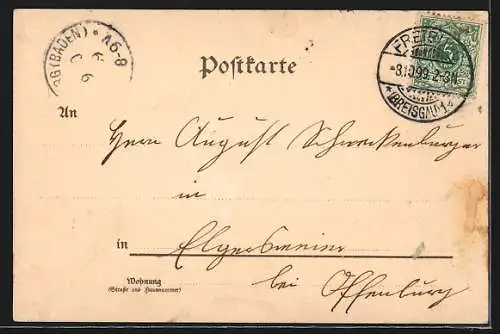 RG (BADEN) * A6-8
FREIBURG
*8.10.99.2-3N
* (BREISGAU) 1 *
Postkarte
An
Herrn August Schneckenburger
in
in Elgersweier
Wohnung
(Straße und Hausnummer)
bei Offenburg